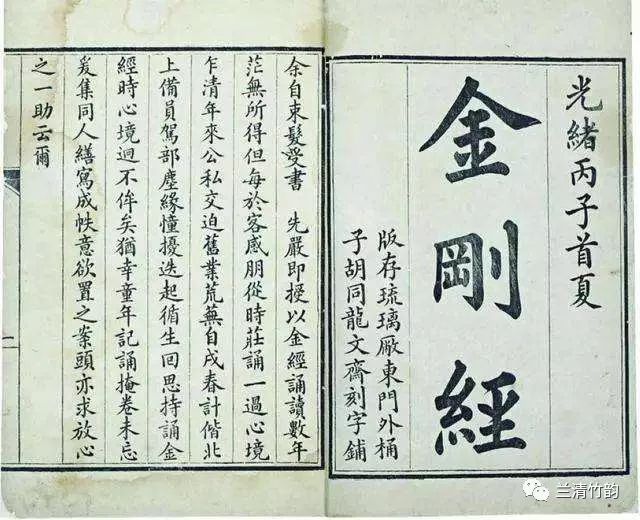 光緒丙子首夏
金剛經
版存琉璃厰東門外桶
子胡同龍文齋刻字鋪
余自束髮受書　先嚴即授以金經誦讀數年
茫無所得但每於客感朋從時莊誦一過心境
乍清年來公私交迫舊業荒蕪自戌春計偕北
上備員駕部塵緣憧擾迭起循生回思持誦金
經時心境迥不侔矣猶幸童年記誦掩卷未忘
爰集同人繕寫成帙意欲置之案頭亦求放心
之一助云爾
兰清竹韵